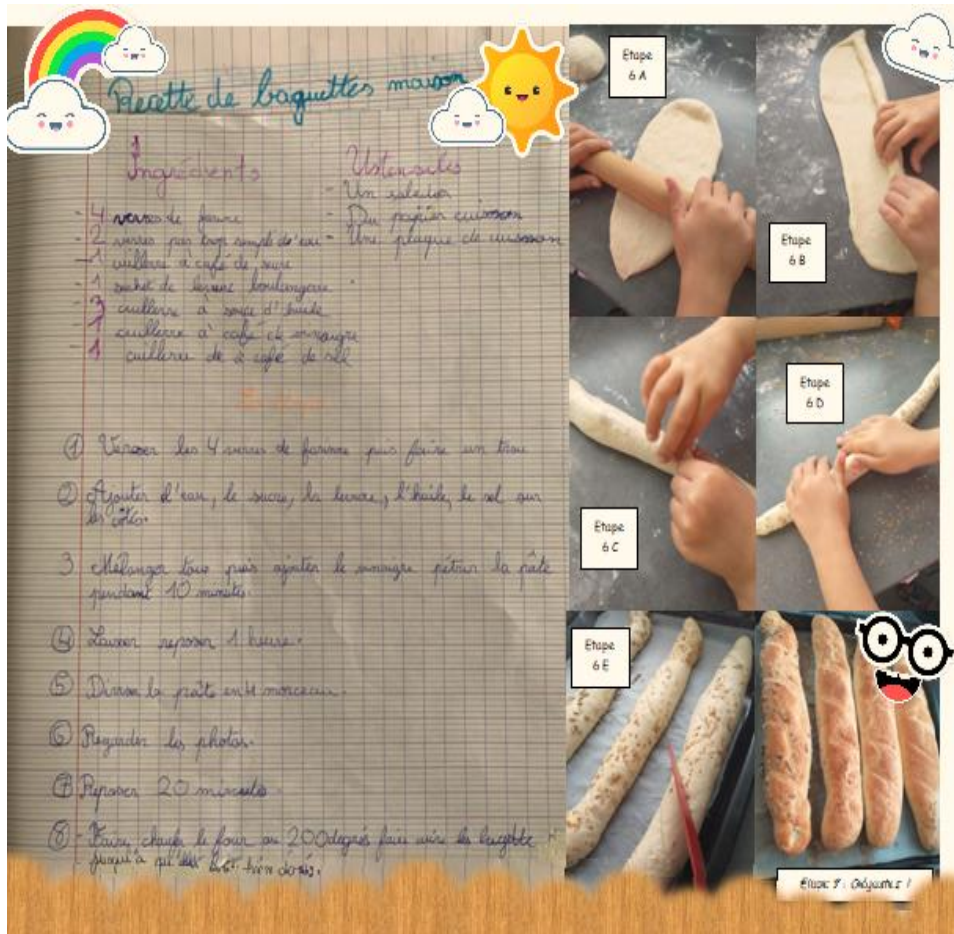 Recette de baguettes maison
Ingrédients
- 4 verres de farine
- 2 verres pas trop rempli d'eau
- 1 cuillerre à café de sucre
- 1 sachet de levure boulangerie
- 3 cuillerre à soupe d'huile
- 1 cuillerre à café de vinaigre
- 1 cuillerre de à café de sel
Ustensiles
- Un saladier
- Du papier cuisson
- Une plaque de cuisson
① Verser les 4 verres de farine puis faire un trou
② Ajouter d'eau, le sucre, la levure, l'huile, le sel sur
les côtés.
3 Mélanger tous puis ajouter le vinaigre pétrir la pâte
pendant 10 minutes.
④ Laisser reposer 1 heure.
⑤ Diviser la pâte en 4 morceaux.
⑥ Regarder les photos.
⑦ Reposer 20 minutes.
⑧ - Faire chauffer le four au 200 degrés faire cuire les baguette
jusqu'à bien dorés.
Etape
6 A
Etape
6 B
Etape
6 C
Etape
6 D
Etape
6 E
Etape 9 : Dégustez !